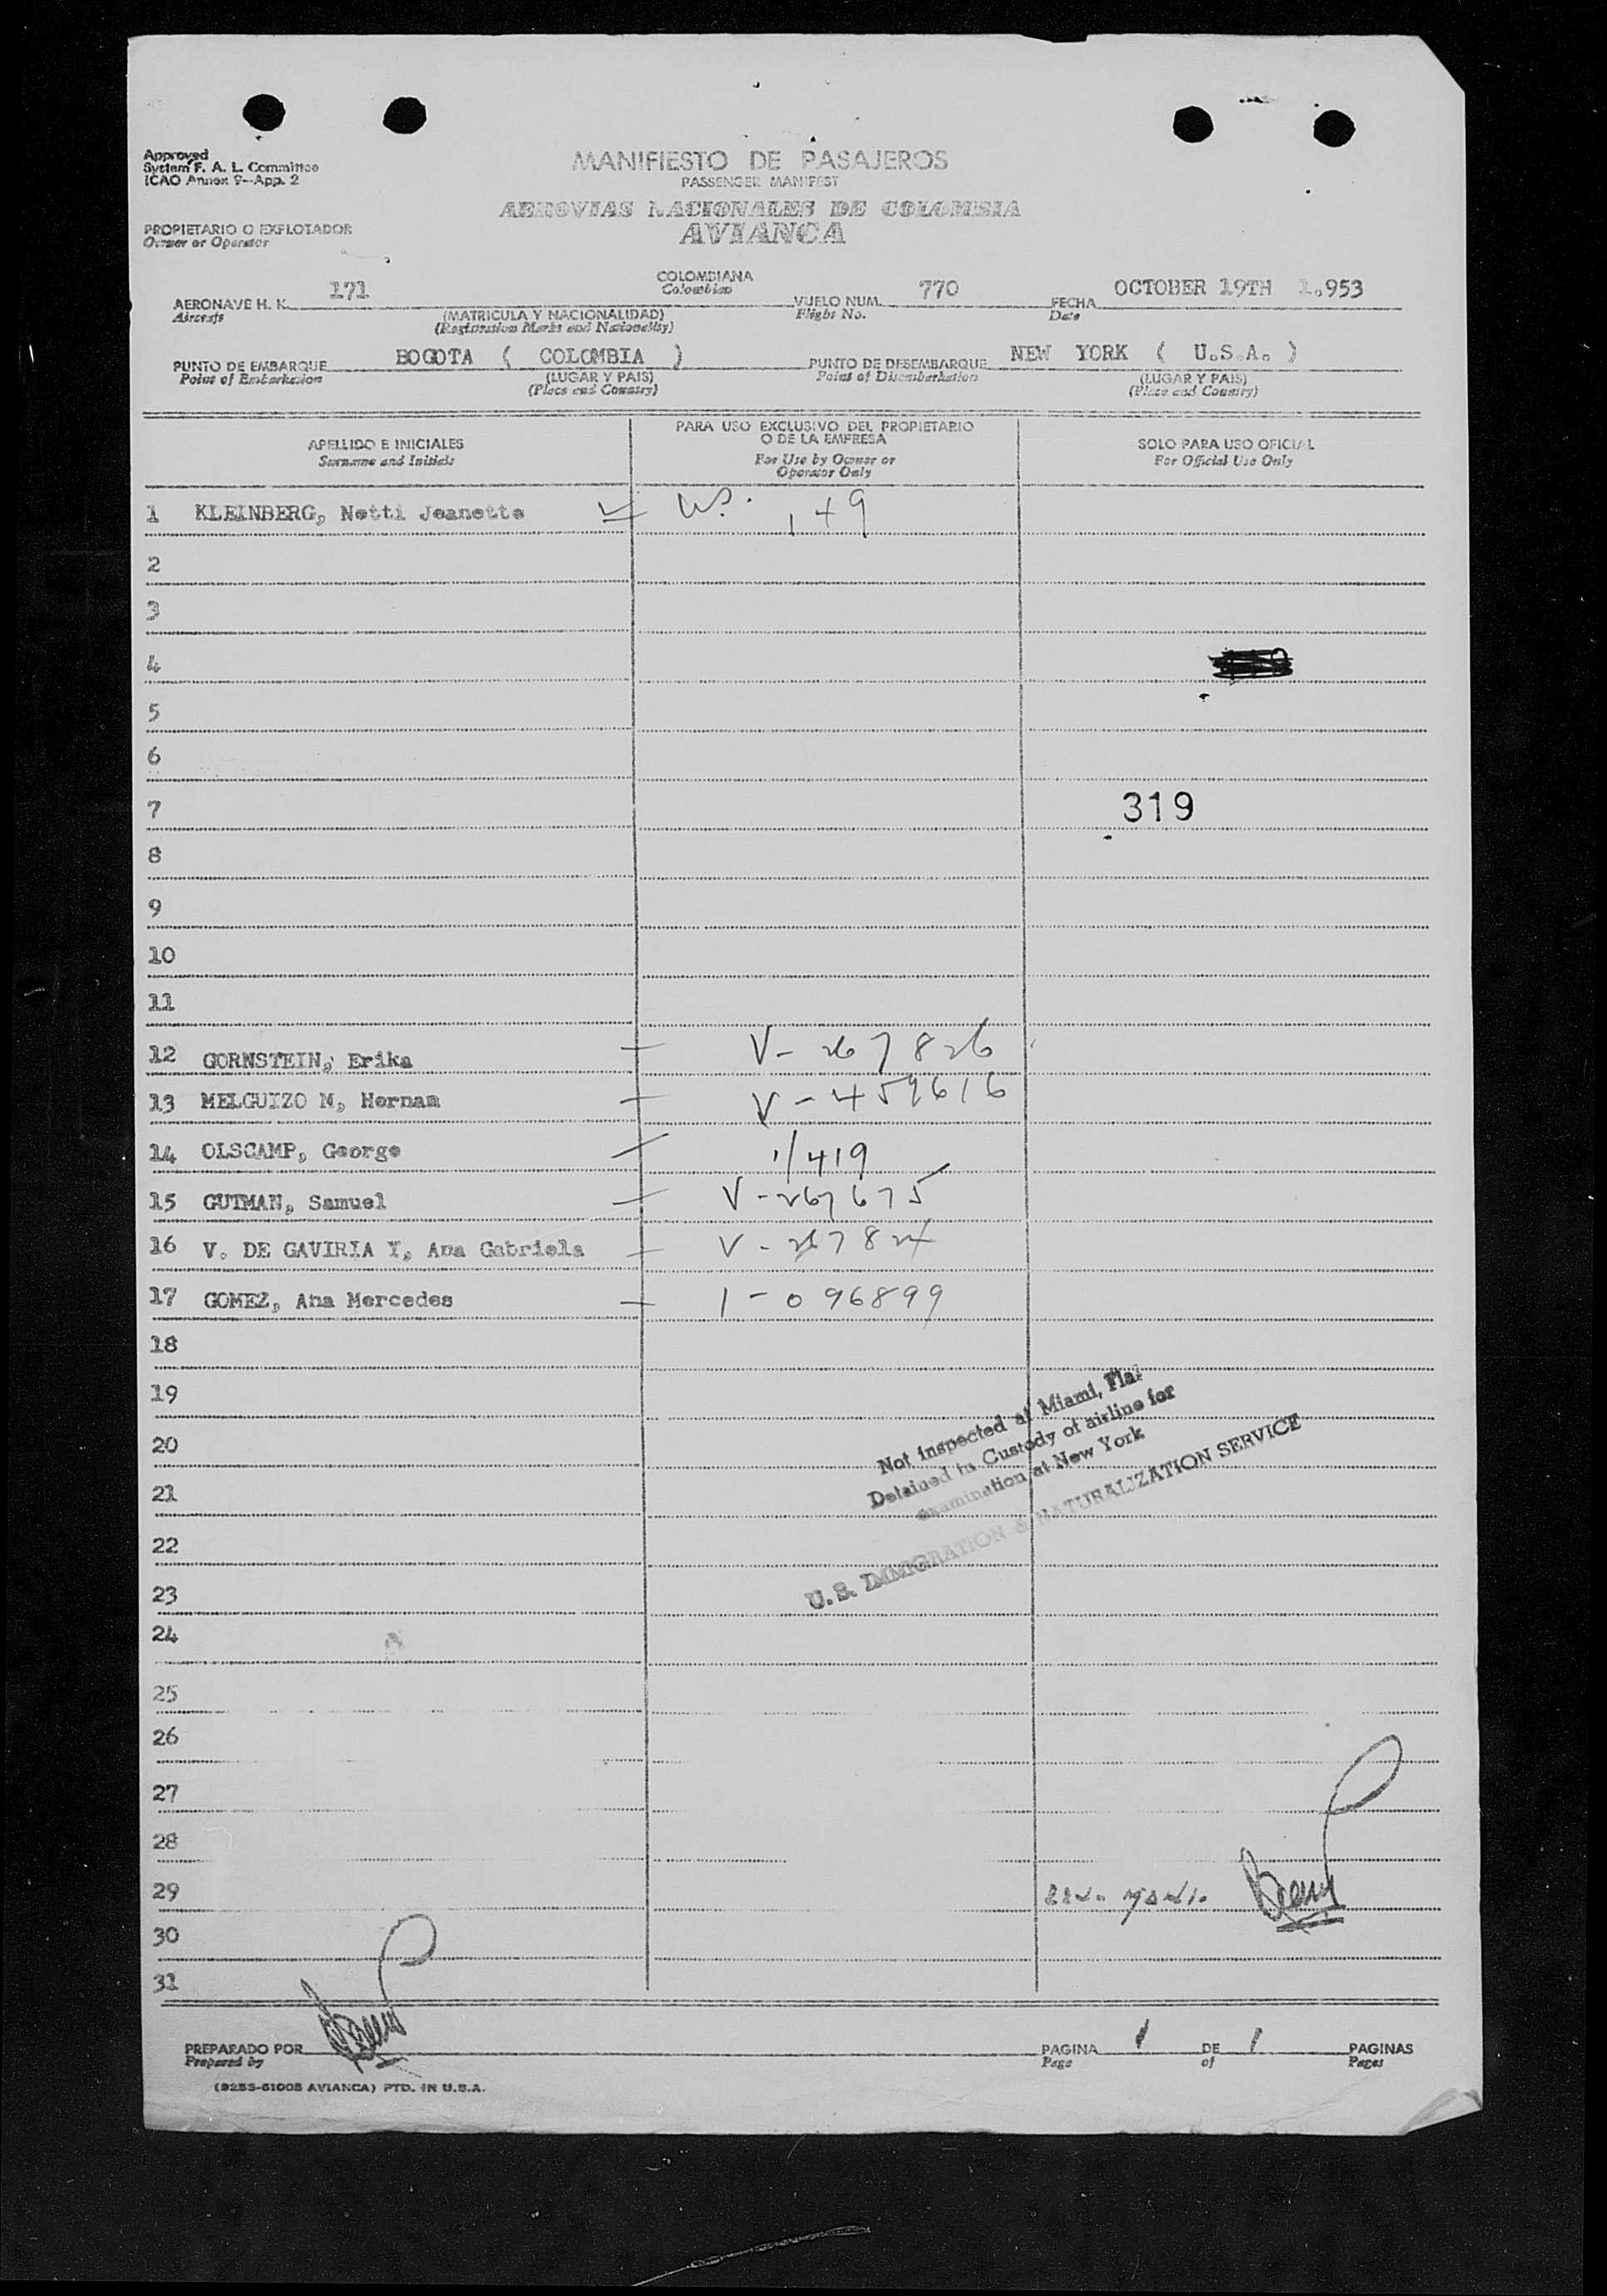 Approved
System F. A. L. Committee
ICAO Annex 9--App. 2
MANIFIESTO DE PASAJEROS
PASSENGER MANIFEST
AEROVIAS NACIONALES DE COLOMBIA
AVIANCA
PROPIETARIO O EXPLOTADOR
Owner or Operator
AERONAVE H. K. 171 COLOMBIANA VUELO NUM. 770 FECHA OCTOBER 19TH 1.953
Aircraft Colombian Flight No. Date
(MATRICULA Y NACIONALIDAD)
(Registration Marks and Nationality)
PUNTO DE EMBARQUE BOGOTA ( COLOMBIA ) PUNTO DE DESEMBARQUE NEW YORK ( U.S.A. )
Point of Embarkation (LUGAR Y PAIS) Point of Disembarkation (LUGAR Y PAIS)
(Place and Country) (Place and Country)
APELLIDO E INICIALES
Surname and Initials
PARA USO EXCLUSIVO DEL PROPIETARIO
O DE LA EMPRESA
For Use by Owner or
Operator Only
SOLO PARA USO OFICIAL
For Official Use Only
1 KLEINBERG, Netti Jeanette
2
3
4
5
6
7 319
8
9
10
11
12 GORNSTEIN, Erika V- 267826
13 MELGUIZO M, Hernan V-459616
14 OLSCAMP, George 1/419
15 GUTMAN, Samuel V-267675
16 V. DE GAVIRIA Y, Ana Gabriela
17 GOMEZ, Ana Mercedes 1-096899
18
19
20
21
22
23
24
25
26
27
28
29
30
31
Not inspected at Miami, Fla.
Detained in Custody of airline for
examination at New York
U.S. IMMIGRATION & NATURALIZATION SERVICE
PREPARADO POR PAGINA 1 DE 1 PAGINAS
Prepared by Page of Pages
(9255-51005 AVIANCA) PTD. IN U.S.A.